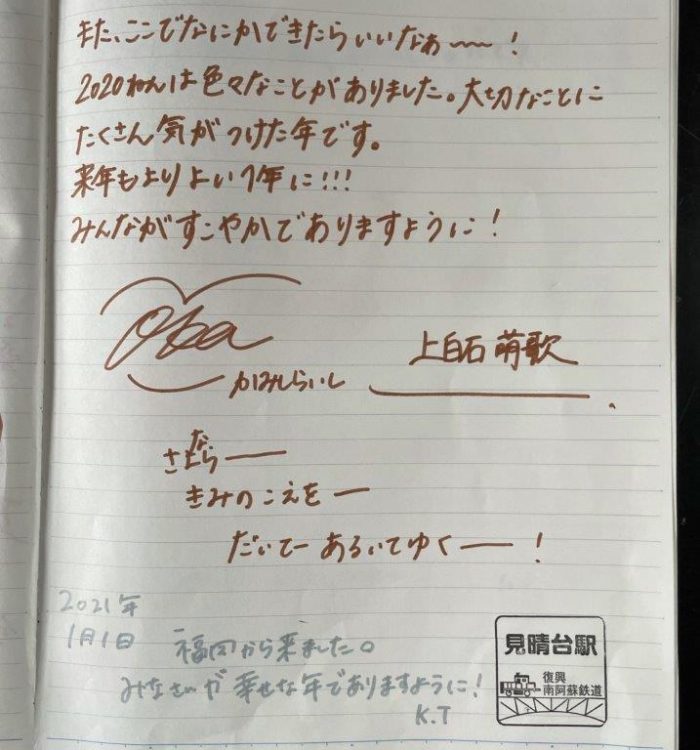 また、ここでなにかできたらいいなぁ〜〜!
2020ねんは色々なことがありました。大切なことに
たくさん気がつけた年です。
来年もよりよい1年に!!!
みんながすこやかでありますように!
かみしらいし
上白石 萌歌
さよならーー
きみのこえをー
だいてー あるいてゆくーー!
2021年
1月1日 福岡から来ました。
みなさんが幸せな年でありますように!
K.T
見晴台駅
復興
南阿蘇鉄道